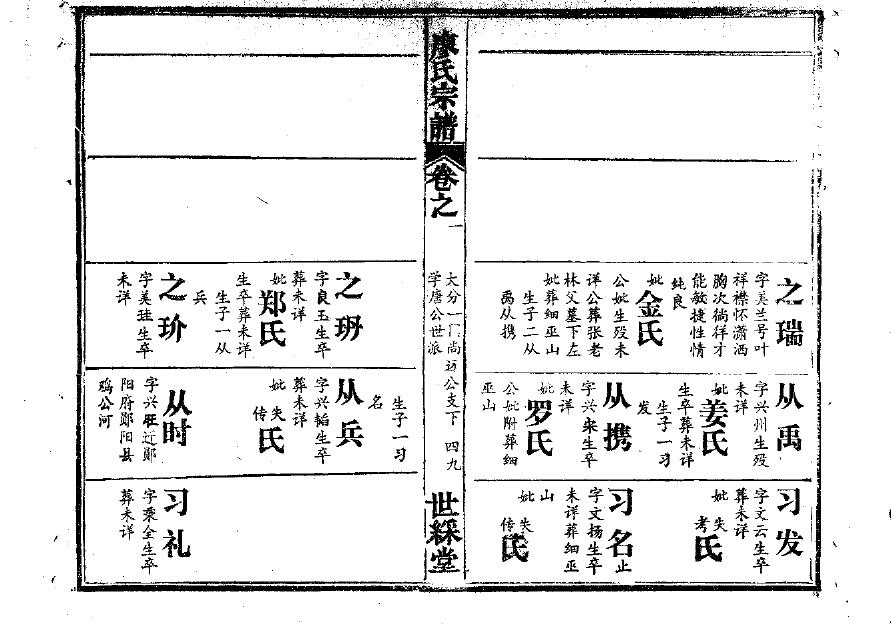 之瑞
字美兰号叶
祥襟怀潇洒
胸次徜徉才
能敏捷性情
纯良
妣
金氏
公妣生殁未
详公葬张老
林父墓下左
妣葬细巫山
生子二从
禹从携
从禹
字兴州生殁
未详
妣
姜氏
生卒葬未详
生子一习
发
从携
字兴来生卒
未详
妣
罗氏
公妣附葬细
巫山
习发
字文云生卒
葬未详
妣失
考
氏
习名止
字文扬生卒
未详葬细巫
山
妣失
传
氏
廖氏宗譜
卷之一
大分一门尚迈公支下 四九
学唐公世派
世綵堂
之玬
字良玉生卒
葬未详
妣
郑氏
生卒葬未详
生子一从
兵
之玠
字美珪生卒
未详
生子一习
名
从兵
字兴韬生卒
葬未详
妣失
传
氏
从时
字兴旺近郧
阳府郧阳县
鸡公河
习礼
字乘全生卒
葬未详